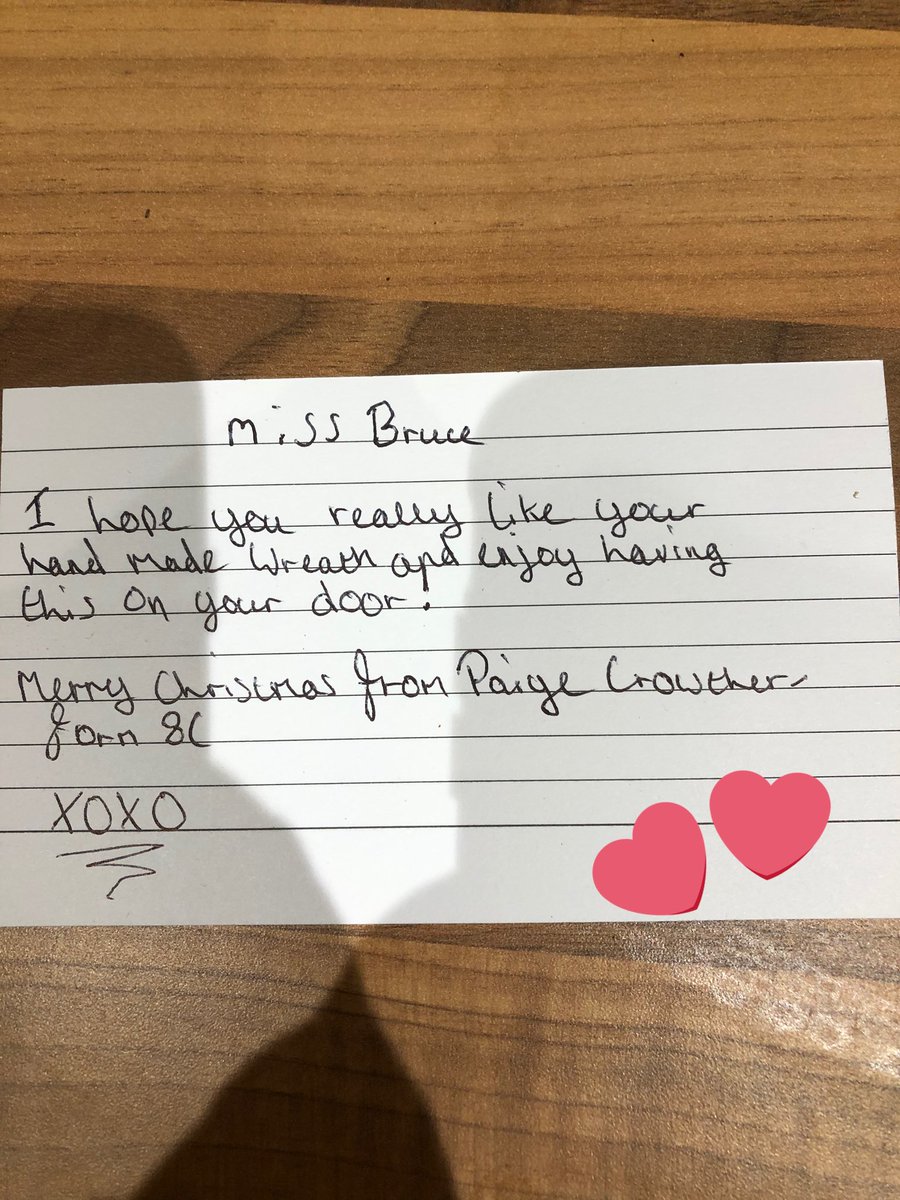 Miss Bruce
I hope you really like your
hand made Wreath and enjoy having
this on your door!
Merry Christmas from Paige Crowther
form 8C
XOXO